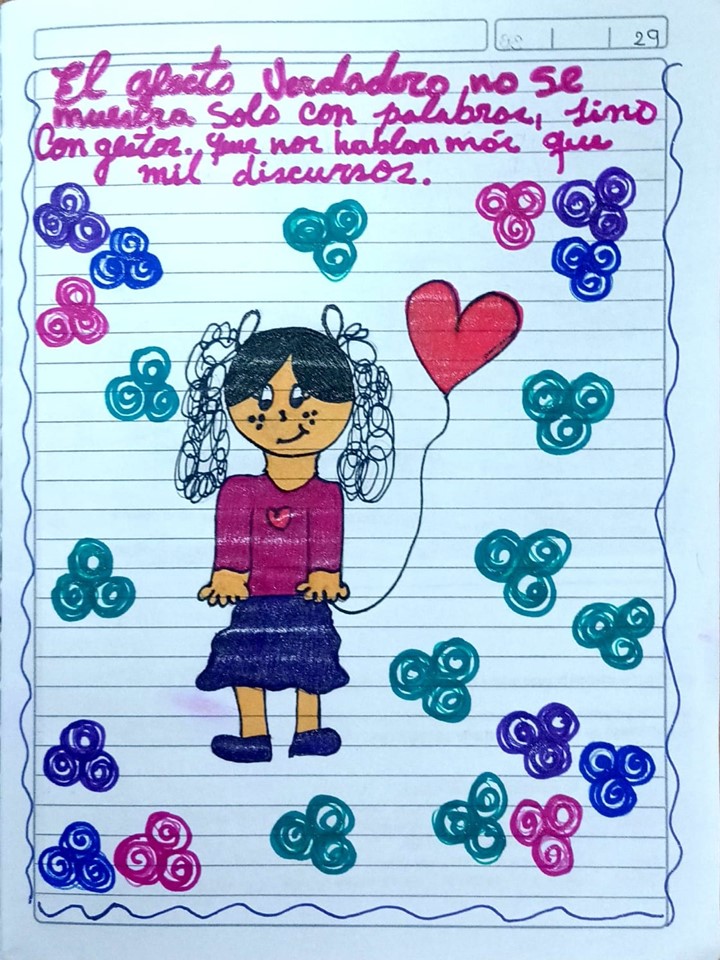 29
El afecto Verdadero no se
muestra solo con palabras, sino
Con gestos. Que nos hablan más que
mil discursos.